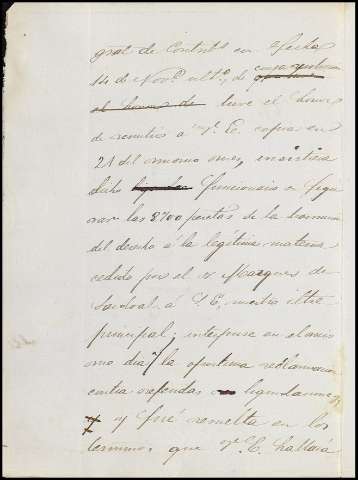 gral de Contribs en fecha
14 de Nove ultº, de cuya
el honor de tuve el honor
de remitir a V. E. copia en
21 del mismo mes, insistia
dicho funcionario en figu
rar las 8700 pesetas de la
del derecho á la legítima materna
cedido por el Sr Marques de
Sardoal á S. E. nuestro iltre
principal; interpuse en el mis
mo dia la oportuna reclamacion
contra referida liquidacion
y fué resuelta en los
terminos que V. E. hallará